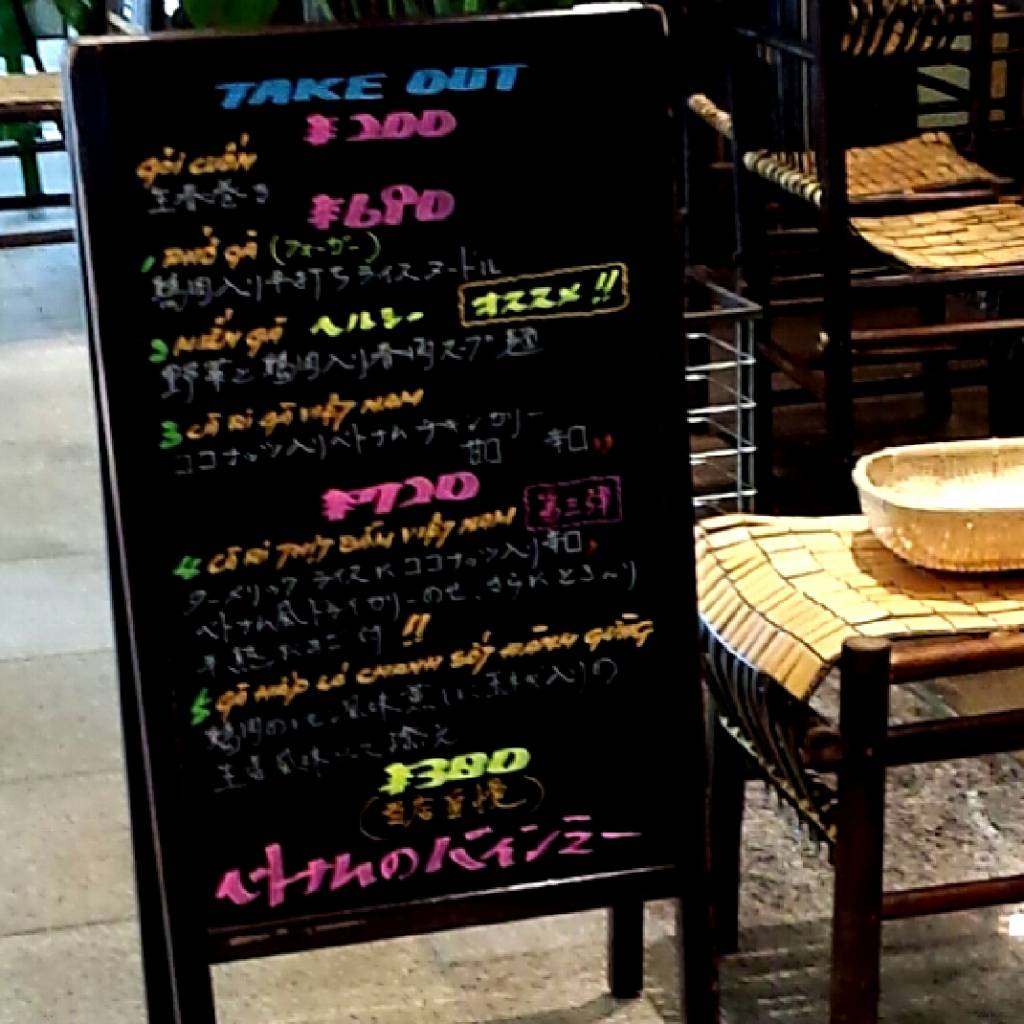 TAKE OUT
¥200
GỎI CUỐN
生春巻き
¥680
1 PHỞ GÀ (フォーガー)
鶏肉入り平打ちライスヌードル
オススメ!!
2 MIẾN GÀ ヘルシー
野菜と鶏肉入り春雨スープ麺
3 CÀ RI GÀ VIỆT NAM
ココナッツ入りベトナムチキンカリー
甘口 辛口
¥720
第三弾
4 CÀ RI THỊT BẰM VIỆT NAM
ターメリックライスにココナッツ入り辛口
ベトナム風ドライカリーのせ、さらにとろ〜り
半熟たまご付!!
5 GÀ HẤP LÁ CHANH
鶏肉のレモン風味蒸し
生姜風味 添え
¥380
(当店自慢)
ベトナムのバインミー